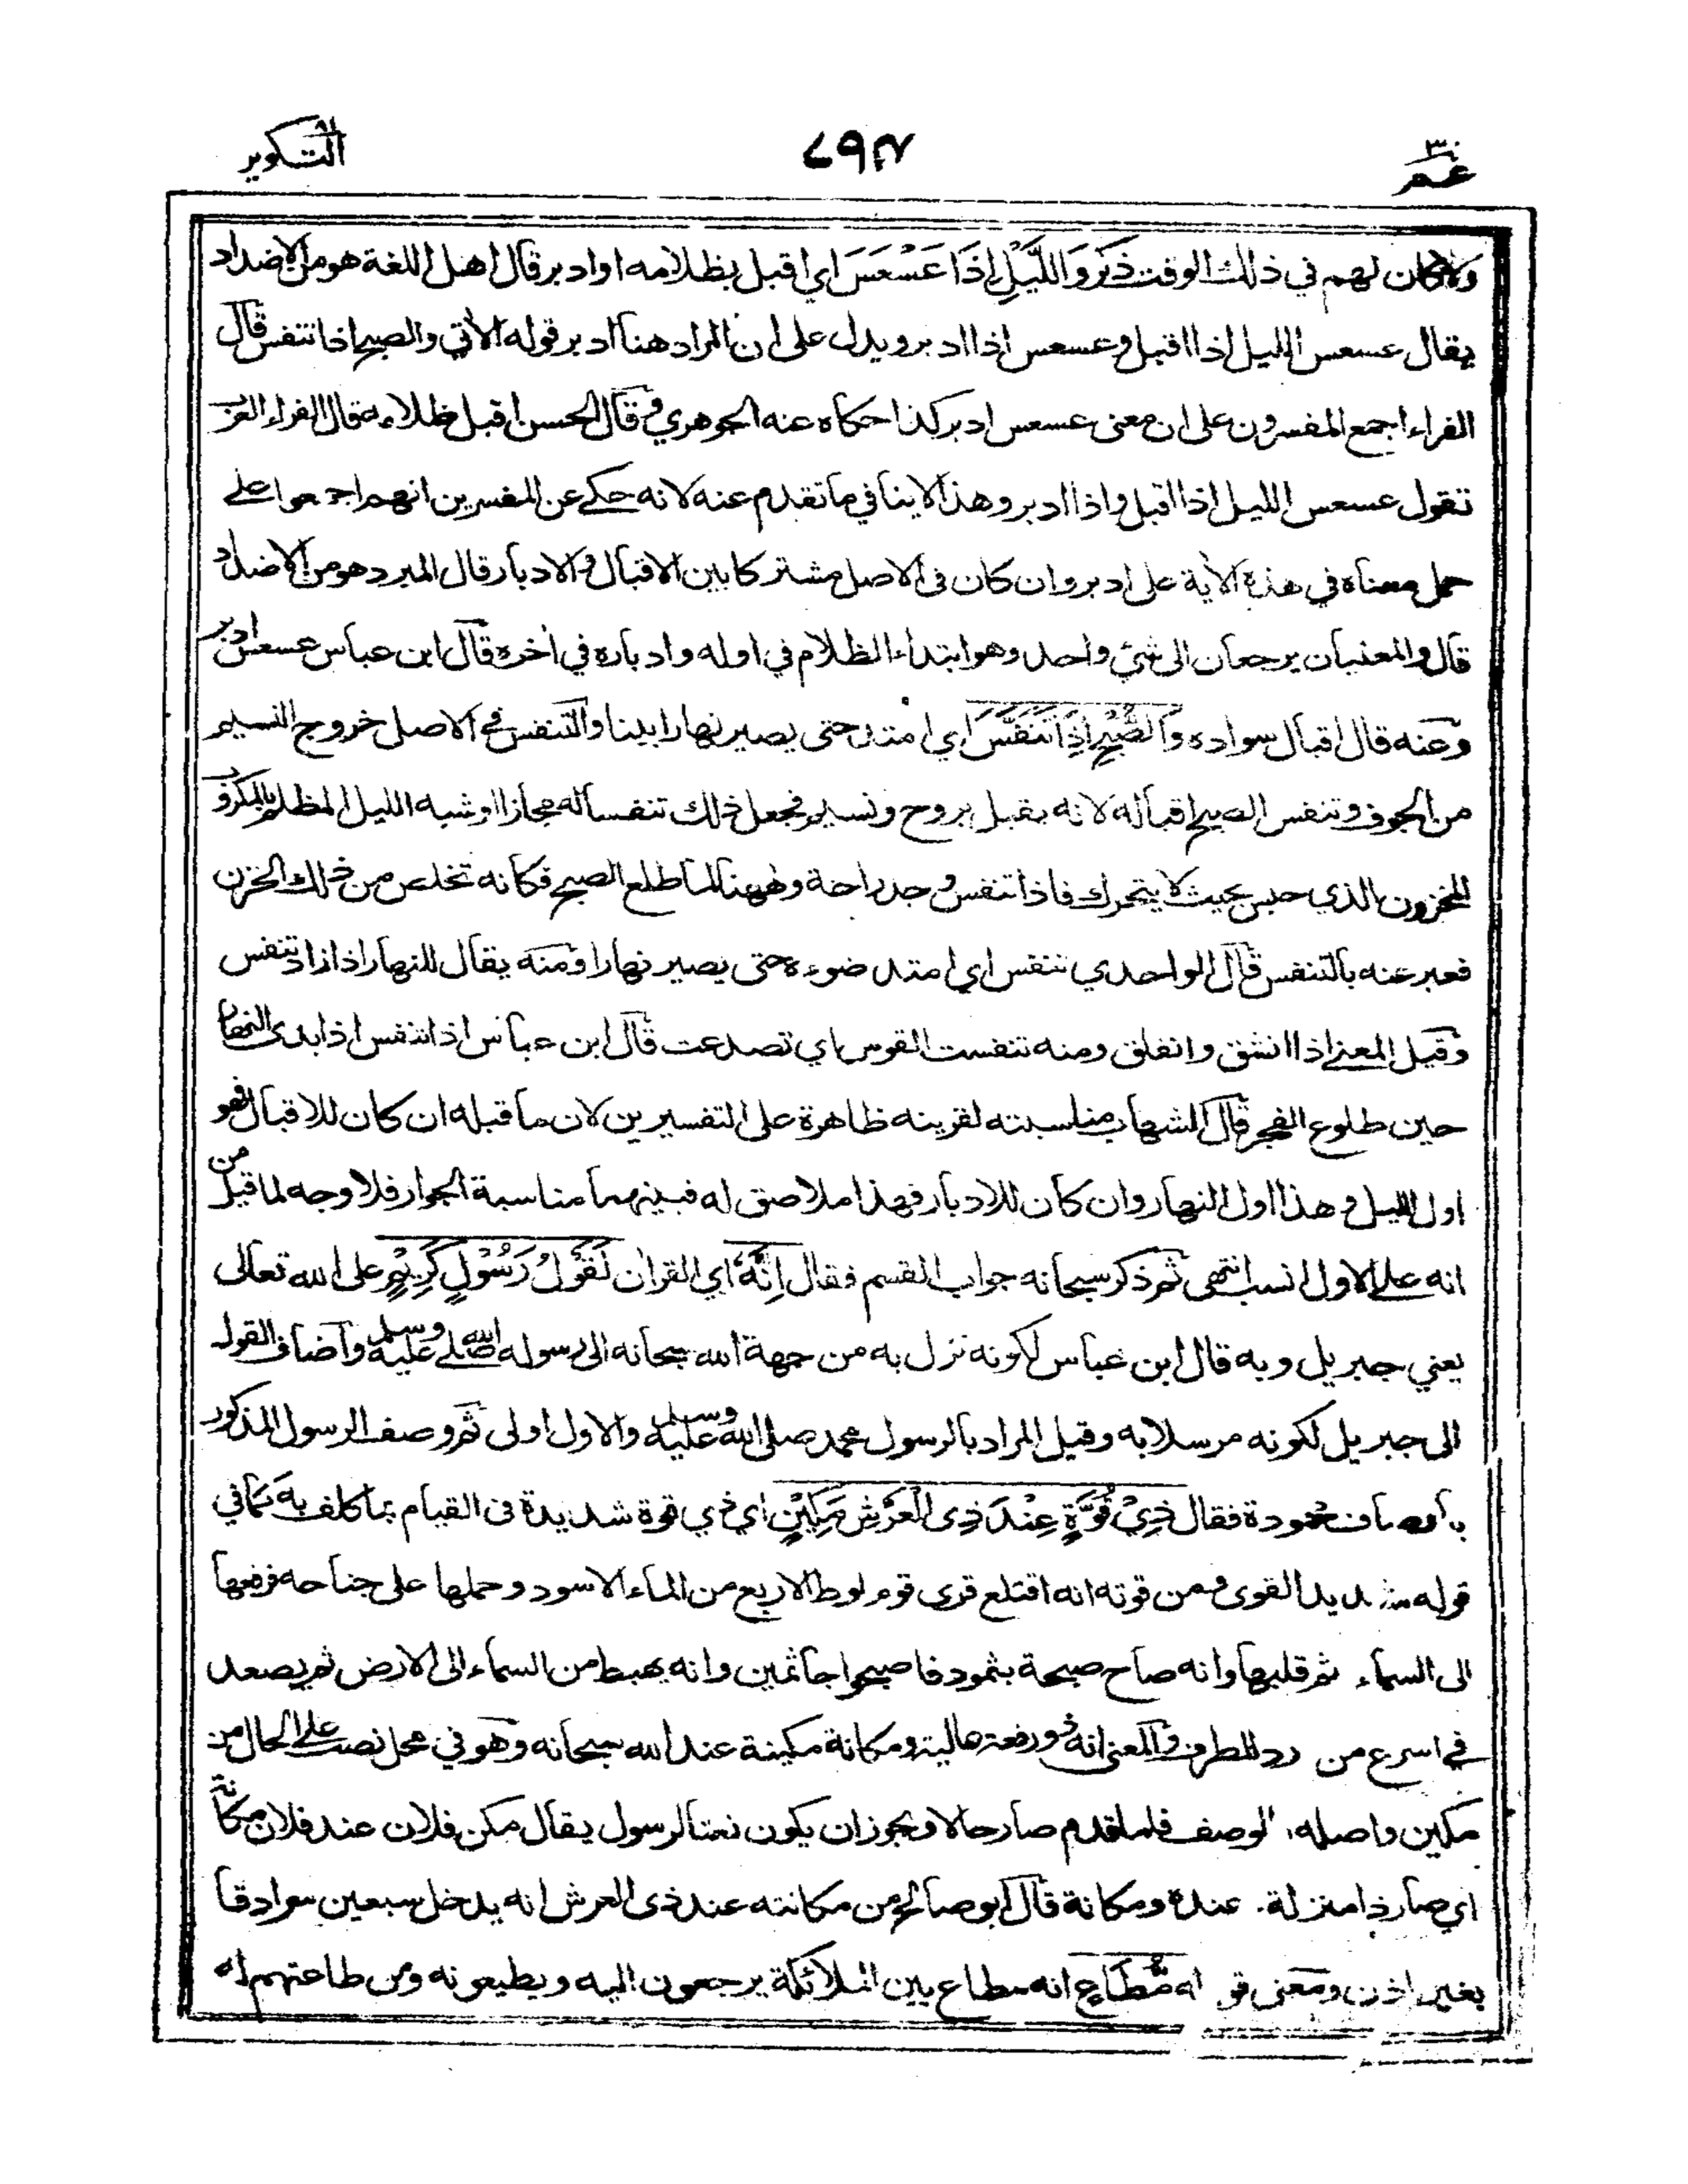 عم ٣٠
٤٩٧
التكوير ٨١
ولا مكان لهم في ذلك الوقت ذكر وَاللَّيْلِ إِذَا عَسْعَسَ اي اقبل بظلامه او ادبر قال اهل اللغة هو من الاضداد
يقال عسعس الليل اذا اقبل وعسعس اذا ادبر ويدل على ان المراد هنا ادبر قوله الآتي والصبح اذا تنفس قال
الفراء اجمع المفسرون على ان معنى عسعس ادبر كذا حكاه عنه الجوهري وقال الحسن اقبل بظلامه قال الفراء العرب
تقول عسعس الليل اذا اقبل واذا ادبر وهذا لا ينافي ما تقدم عنه لانه حكى عن المفسرين انهم اجمعوا على
حمل معناه في هذه الآية على ادبر وان كان في الاصل مشتركا بين الاقبال والادبار قال المبرد هو من الاضداد
قال والمعنيان يرجعان الى شئ واحد وهو ابتداء الظلام في اوله وادباره في اخره قال ابن عباس عسعس ادبر
وعنه قال اقبال سواده وَالصُّبْحِ اِذَا تَنَفَّسَ اي امتد حتى يصير نهارا بينا والتنفس في الاصل خروج النسيم
من الجوف وتنفس الصبح اقباله لانه يقبل بروح ونسيم فجعل ذلك تنفسا له مجازا او شبه الليل المظلم بالمكروب
المحزون الذي حبس بحيث لا يتحرك فاذا تنفس وجد راحة وههنا لما طلع الصبح فكانه تخلص من ذلك الحزن
فعبر عنه بالتنفس قال الواحدي تنفس اي امتد ضوءه حتى يصير نهارا ومنه يقال للنهار اذا زاد تنفس
وقيل المعنى اذا انشق وانفلق ومنه تنفست القوس اي تصدعت قال ابن عباس اذا تنفس اذا بدى النهار
حين طلوع الفجر قال الشهاب مناسبته لقرينه ظاهرة على التفسيرين لان ما قبله ان كان للاقبال فهو
اول الليل وهذا اول النهار وان كان للادبار فهذا ملاصق له فبينهما مناسبة الجوار فلا وجه لما قيل من
انه على الاول انسب انتهى ثم ذكر سبحانه جواب القسم فقال اِنَّهُ اي القران لَقَوْلُ رَسُوْلٍ كَرِيْمٍ على الله تعالى
يعني جبريل وبه قال ابن عباس لكونه نزل به من جهة الله سبحانه الى رسوله صلى الله عليه وسلم واضاف القول
الى جبريل لكونه مرسلا به وقيل المراد بالرسول محمد صلى الله عليه وسلم والاول اولى ثم وصف الرسول المذكور
باوصاف محمودة فقال ذِيْ قُوَّةٍ عِنْدَ ذِى الْعَرْشِ مَكِيْنٍ اي ذي قوة شديدة في القيام بما كلف به كما في
قوله شديد القوى ومن قوته انه اقتلع قرى قوم لوط الاربع من الماء الاسود وحملها على جناحه فرفعها
الى السماء ثم قلبها وانه صاح صيحة بثمود فاصبحوا جاثمين وانه يهبط من السماء الى الارض ثم يصعد
في اسرع من رد الطرف والمعنى انه ذو رفعة عالية ومكانة مكينة عند الله سبحانه وهو في محل نصب على الحال من
مكين واصله الوصف فلما قدم صار حالا ويجوز ان يكون نعتا لرسول يقال مكن فلان عند فلان مكانة
اي صار ذا منزلة عنده ومكانة قال ابو صالح من مكانته عند ذى العرش انه يدخل سبعين سرادقا
بغير اذن ومعنى قوله مُّطَاعٍ انه مطاع بين الملائكة يرجعون اليه ويطيعونه ومن طاعتهم له